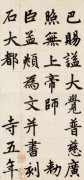 巳賜謚大覺普慈廣
照無上帝師　敕
臣孟頫為文并書刻
石大都　　寺五年